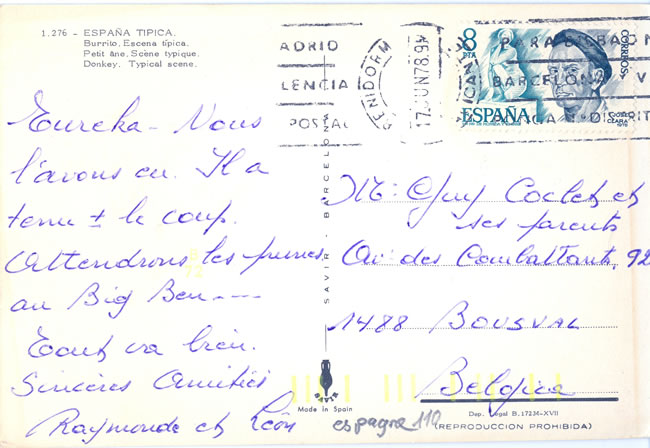 1.276 - ESPAÑA TIPICA.
Burrito. Escena típica.
Petit âne. Scène typique.
Donkey. Typical scene.
Eureka - Nous
l'avons eu. Il a
tenu ± le coup.
Attendrons les
au Big Ben - - -
Tout va bien.
Sincères Amitiés
Raymonde et Léon
SAVIR - BARCELONA
SAVIR
Made in Spain
espagne 110
BENIDORM
17 JUN 78
8
PTA
CORREOS
ESPAÑA
Mr Guy Coclet et
ses parents
Av. des Combattants, 92
1488 BOUSVAL
Belgica
Dep. Legal B. 17234-XVII
(REPRODUCCION PROHIBIDA)